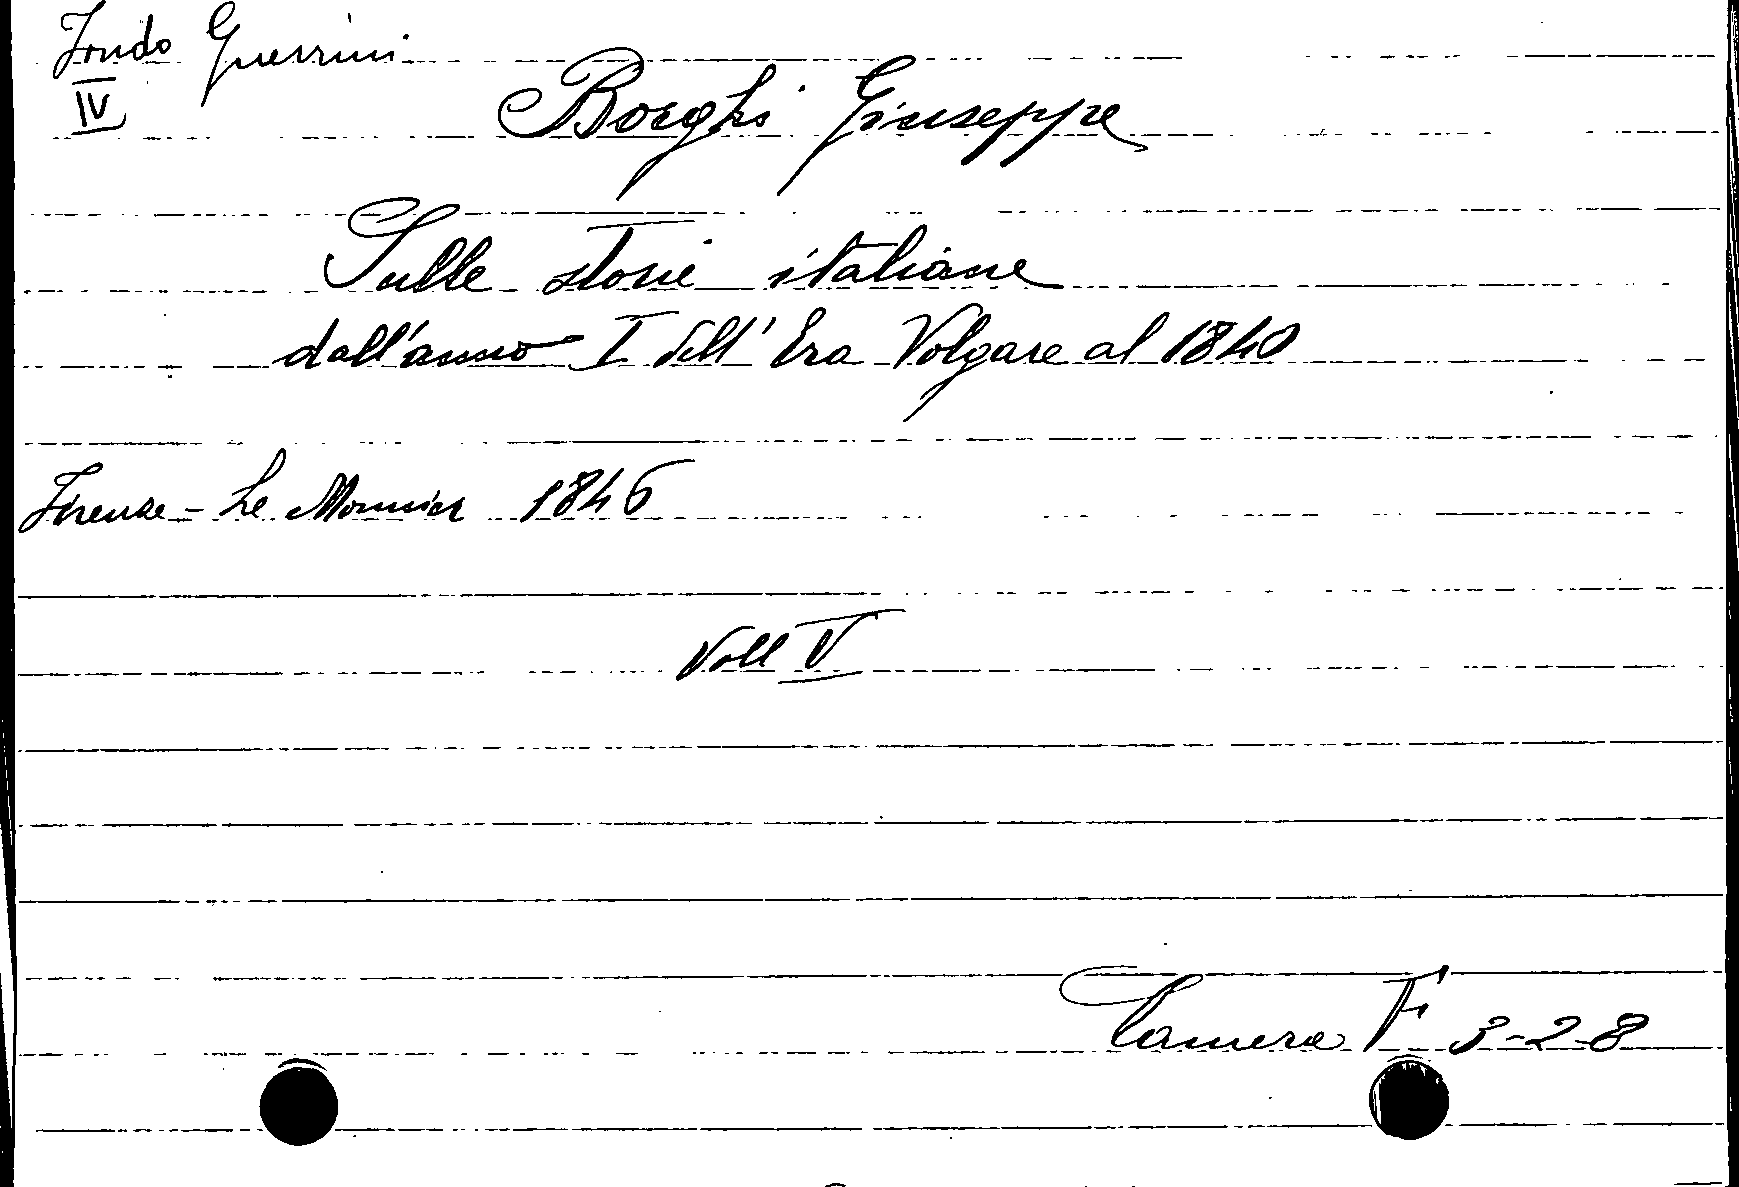 Fondo Guerrini
IV
Borghi Giuseppe
Sulle storie italiane
dall'anno I dell'Era Volgare al 1840
Firenze - Le Monnier 1846
Voll V
Camera F 3-2-8